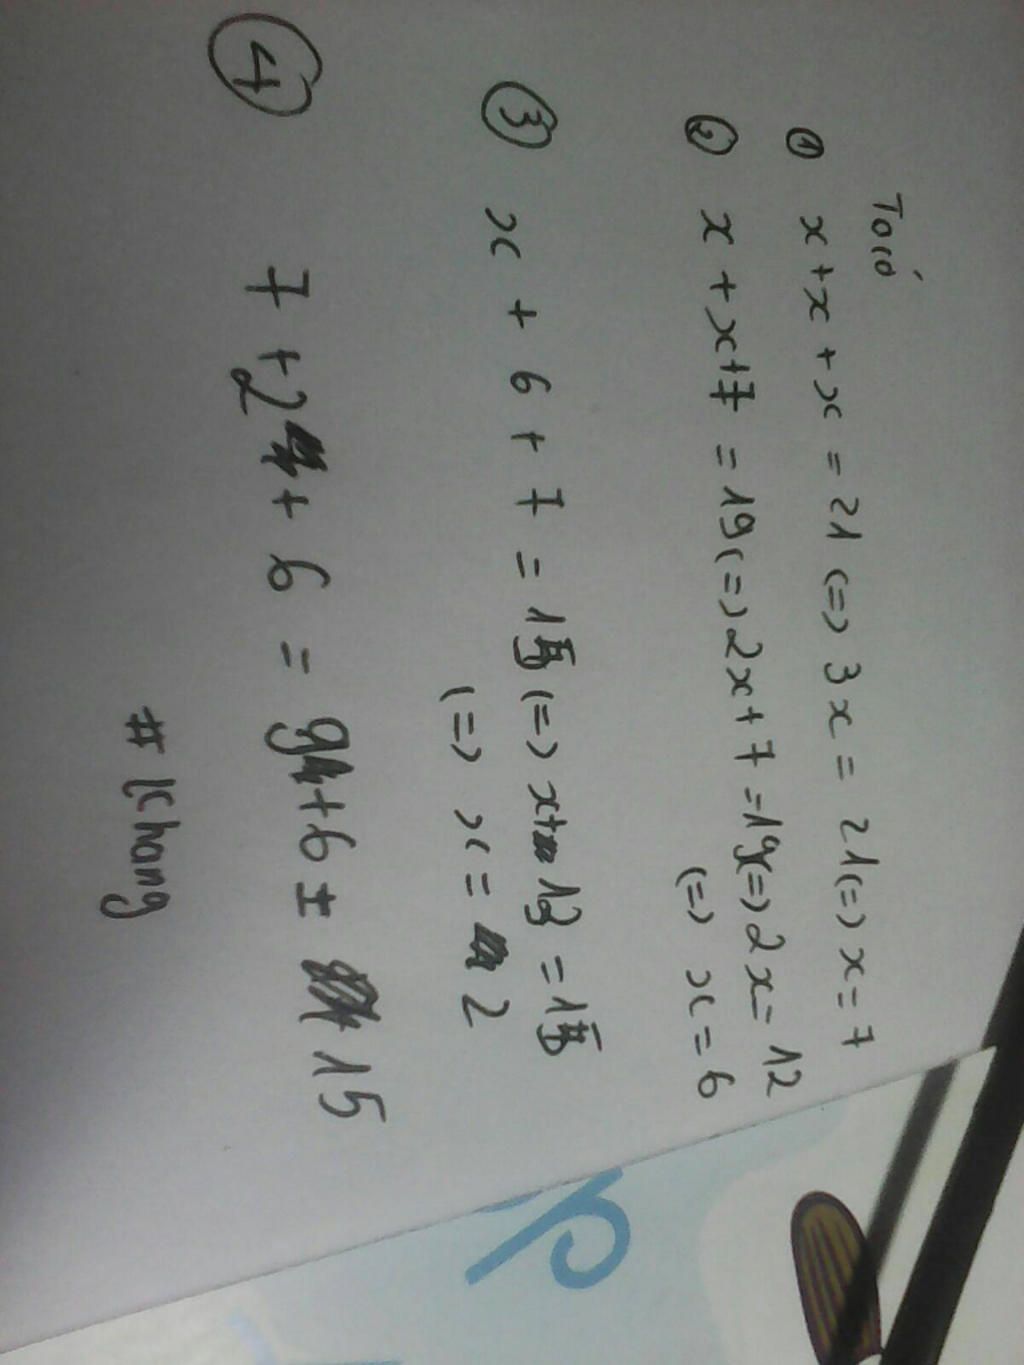 Ta có
① x + x + x = 21 (=) 3x = 21 (=) x = 7
② x + x + 7 = 19 (=) 2x + 7 = 19 (=) 2x = 12
(=) x = 6
③ x + 6 + 7 = 15 (=) x + 13 = 15
(=) x = 2
④ 7 + 2 + 6 = 9 + 6 = 15
# Khang